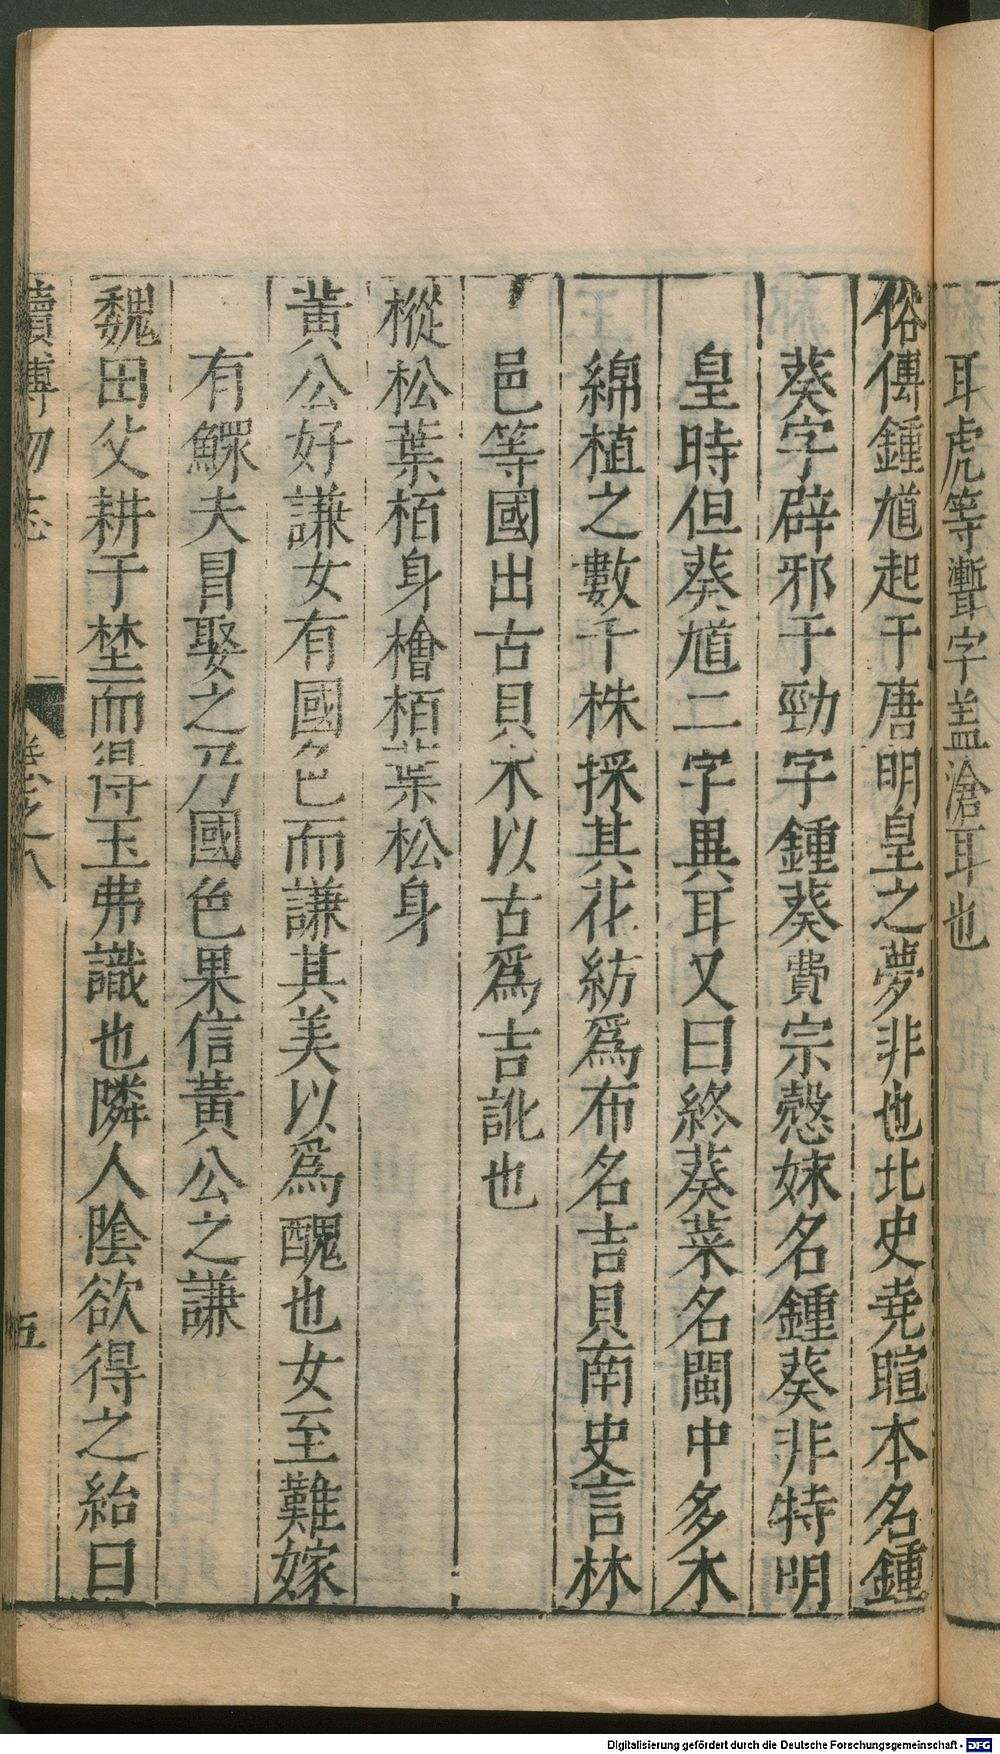 耳虎等漸耳字盖滄耳也
俗傳鍾馗起于唐明皇之夢非也北史堯暄本名鍾
葵字辟邪于勁字鍾葵費宗愨妹名鍾葵非特明
皇時但葵馗二字異耳又曰終葵菜名閩中多木
綿植之數千株採其花紡爲布名吉貝南史言林
邑等國出古貝木以古爲吉訛也
樅松葉栢身檜栢葉松身
黃公好謙女有國色而謙其美以爲醜也女至難嫁
有鰥夫冒娶之乃國色果信黃公之謙
魏田父耕于埜而得玉弗識也隣人陰欲得之紿曰
續博物志 卷之八 五
Digitalisierung gefördert durch die Deutsche Forschungsgemeinschaft - DFG